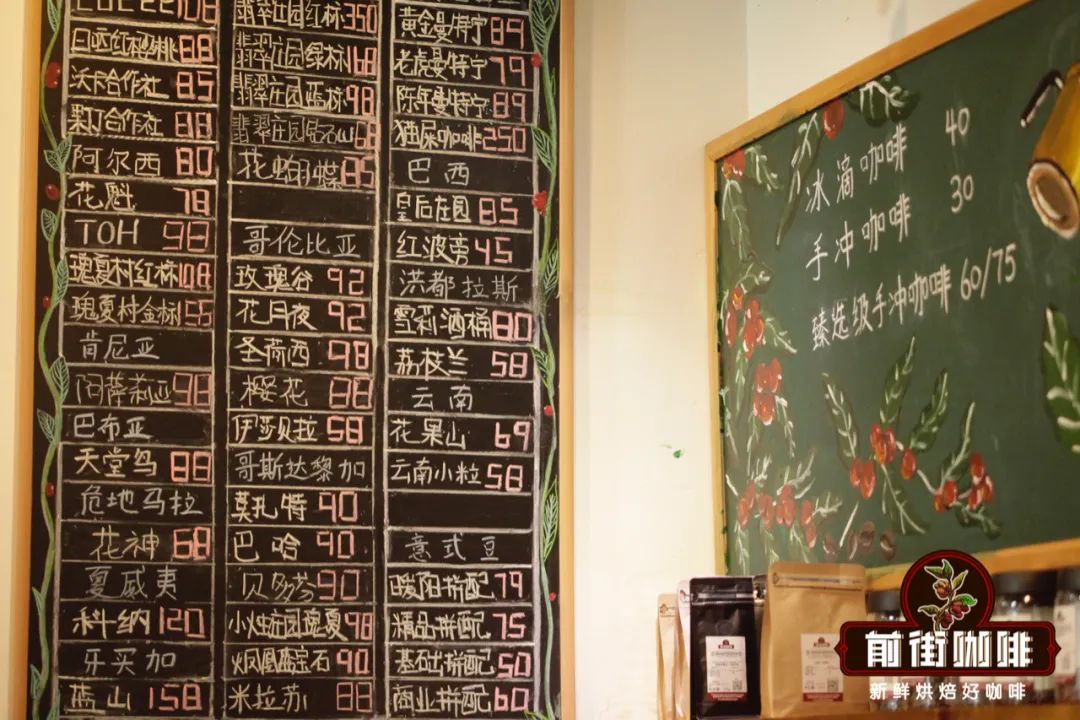 日晒红樱桃 88
沃卡合作社 85
果丁合作社 88
阿尔西 80
花魁 78
TOH 98
瑰夏村红标 108
瑰夏村金标
肯尼亚
阿萨莉亚 98
巴布亚
天堂鸟 88
危地马拉
花神 68
夏威夷
科纳 120
牙买加
蓝山 158
翡翠庄园红标 350
翡翠庄园绿标 168
翡翠庄园蓝标 98
翡翠庄园钻石山 68
花蝴蝶 85
哥伦比亚
玫瑰谷 92
花月夜 92
圣荷西 98
樱花 88
伊莎贝拉 58
哥斯达黎加
莫扎特 90
巴哈 90
贝多芬 90
小烛庄园瑰夏 98
火凤凰蓝宝石 90
米拉苏 88
黄金曼特宁 89
老虎曼特宁 79
陈年曼特宁 89
猫屎咖啡 250
巴西
皇后庄园 85
红波旁 45
洪都拉斯
雪莉酒桶 80
荔枝兰 58
云南
花果山 69
云南小粒 58
意式豆
暖阳拼配 79
精品拼配 75
基础拼配 50
商业拼配 60
冰滴咖啡 40
手冲咖啡 30
臻选级手冲咖啡 60/75
前街咖啡
新鲜烘焙好咖啡